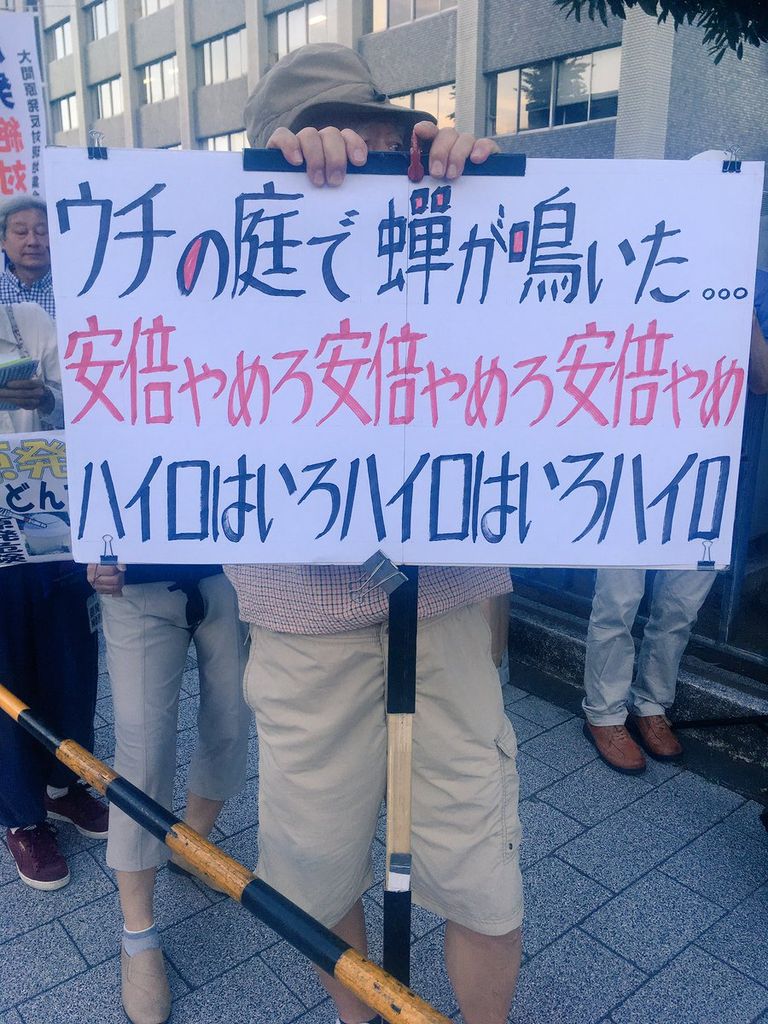 ウチの庭で蟬が鳴いた...
安倍やめろ安倍やめろ安倍やめ
ハイロはいろハイロはいろハイロ
大間原発反対現地集会
絶対
原発
どん